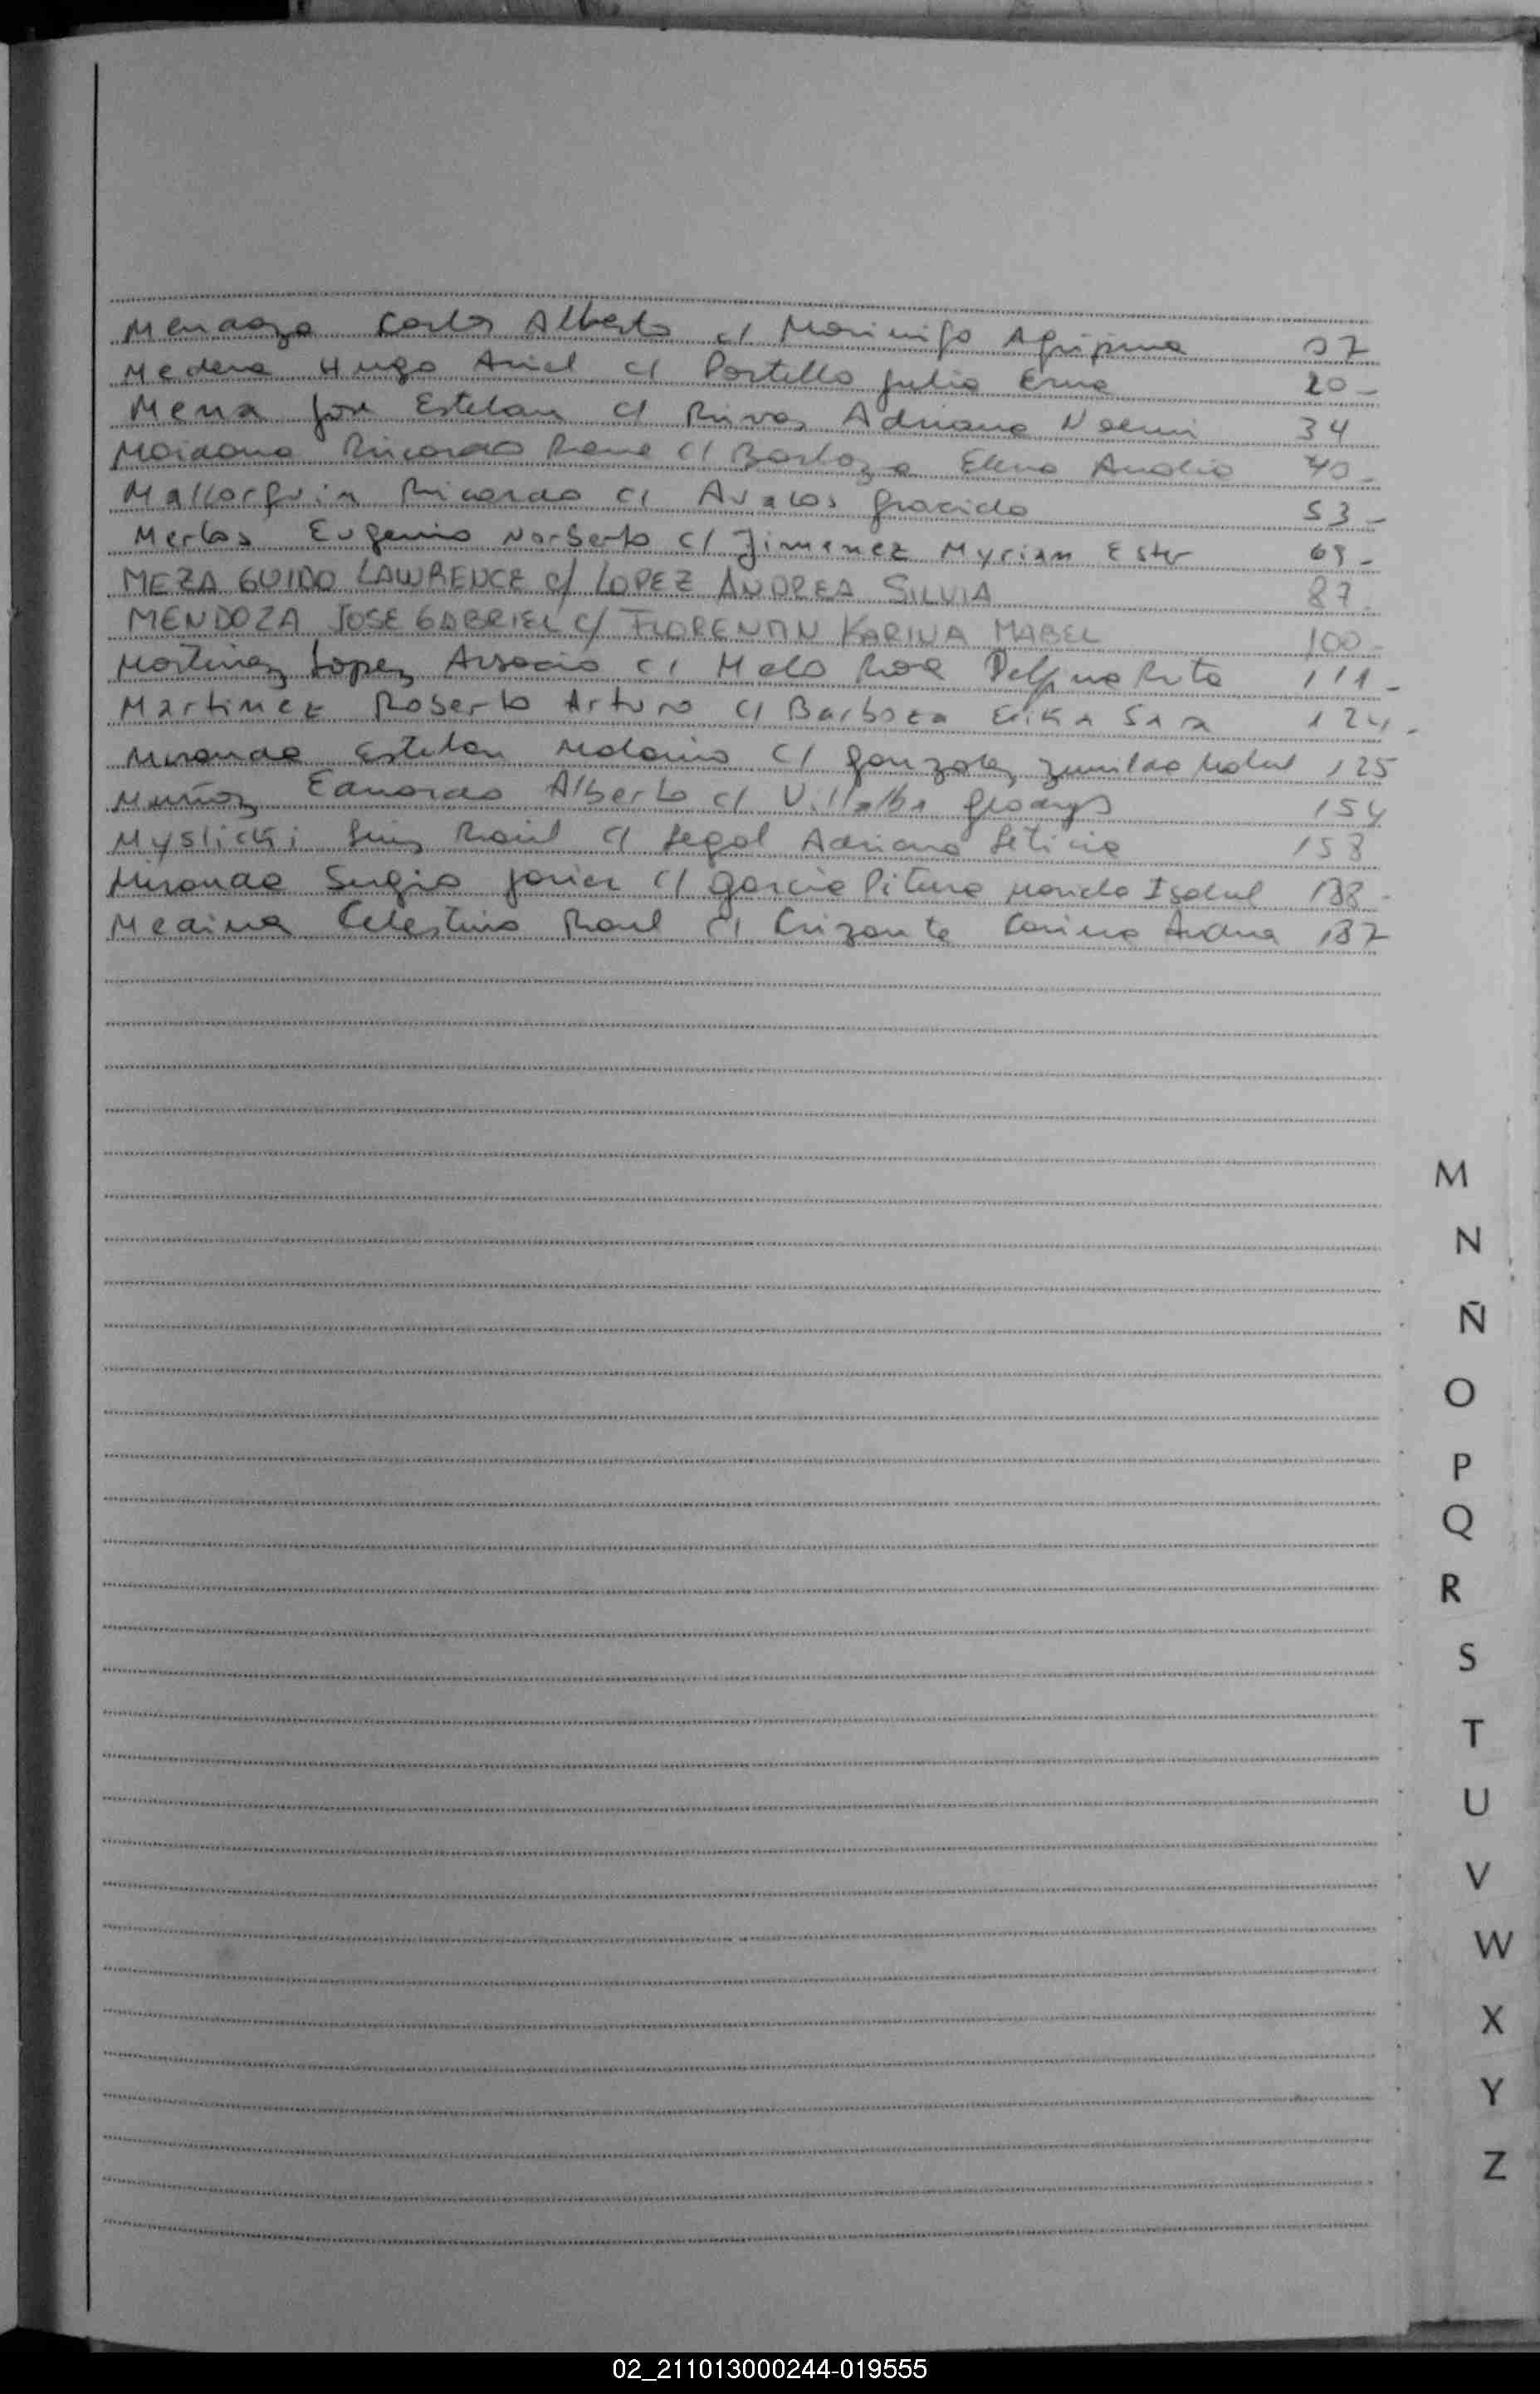 Mendoza Carlos Alberto c/ Morinigo Agripina 07
Medera Hugo Ariel c/ Portello Julia Erna 20-
Mena Jose Esteban c/ Rivas Adriana Noemi 34
Maidana Ricardo Rene c/ Barboza Elena Analia 40-
Mallorquin Ricardo c/ Avalos Gracida 53-
Merlos Eugenio Norberto c/ Jimenez Myriam Ester 69-
MEZA GUIDO LAWRENCE c/ LOPEZ ANDREA SILVIA 87.
MENDOZA JOSE GABRIEL c/ FLORENTIN KARINA MABEL 100-
Martinez Lopez c/ Melo Rosa Delfina Rita 111-
Martinez Roberto Arturo c/ Barboza Erika Sara 124.
Miranda Esteban c/ Gonzalez Zunilda Mabel 125
Muñoz Eduardo Alberto c/ Villalba Gladys 154
Myslicki Luis Raúl c/ Segal Adriana Leticia 158
Miranda Sergio Javier c/ Garcia Isabel 188-
Medina Celestino Raul c/ Carina 187
M
N
Ñ
O
P
Q
R
S
T
U
V
W
X
Y
Z
02_211013000244-019555